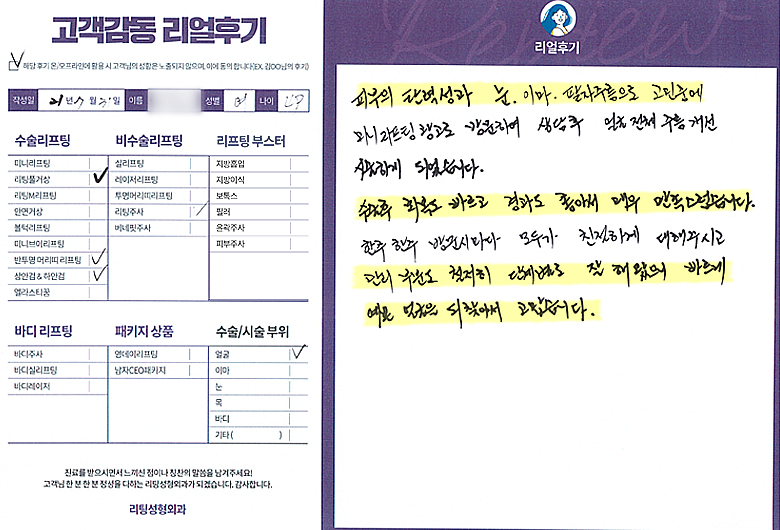 고객감동 리얼후기
해당 후기 온/오프라인에 활용 시 고객님의 성함은 노출되지 않으며, 이에 동의 합니다(EX. 김OO님의 후기)
작성일 21년 7월 31일 이름 성별 여 나이
수술리프팅
미니리프팅
리팅풀거상
리팅M리프팅
안면거상
볼턱리프팅
미니브이리프팅
반투명 머리띠 리프팅
상안검 & 하안검
엘라스티꿈
비수술리프팅
실리프팅
레이저리프팅
투명머리띠리프팅
리팅주사
베네핏주사
리프팅 부스터
지방흡입
지방이식
보톡스
필러
윤곽주사
피부주사
바디 리프팅
바디주사
바디실리프팅
바디레이저
패키지 상품
영데이리프팅
남자CEO패키지
수술/시술 부위
얼굴
이마
눈
목
바디
기타 ( )
진료를 받으시면서 느끼신 점이나 칭찬의 말씀을 남겨주세요!
고객님 한 분 한 분 정성을 다하는 리팅성형외과가 되겠습니다. 감사합니다.
리팅성형외과
리얼후기
피부의 탄력성과 눈. 이마. 팔자주름으로 고민중에
미니리프팅 광고로 방문하여 상담후 얼굴전체 주름개선
시술하게 되었습니다.
수술후 회복도 빠르고 경과도 좋아서 매우 만족드렸습니다.
한주 한주 방문시마다 모두가 친절하게 대해주시고
관리 부분도 철저히 단계별로 잘 해주셨으니 빠르게
예쁜 얼굴을 되찾아서 고맙습니다.